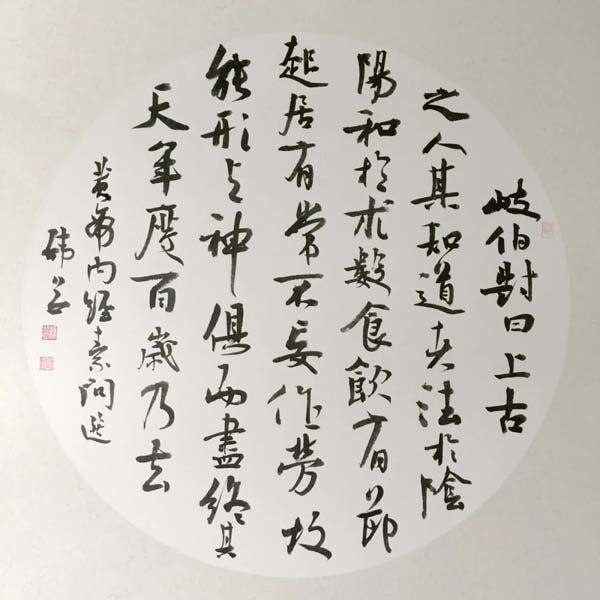 岐伯對曰上古
之人其知道者法於陰
陽和於术數食飲有節
起居有常不妄作勞故
能形與神俱而盡終其
天年度百歲乃去
黃帝內經素問選